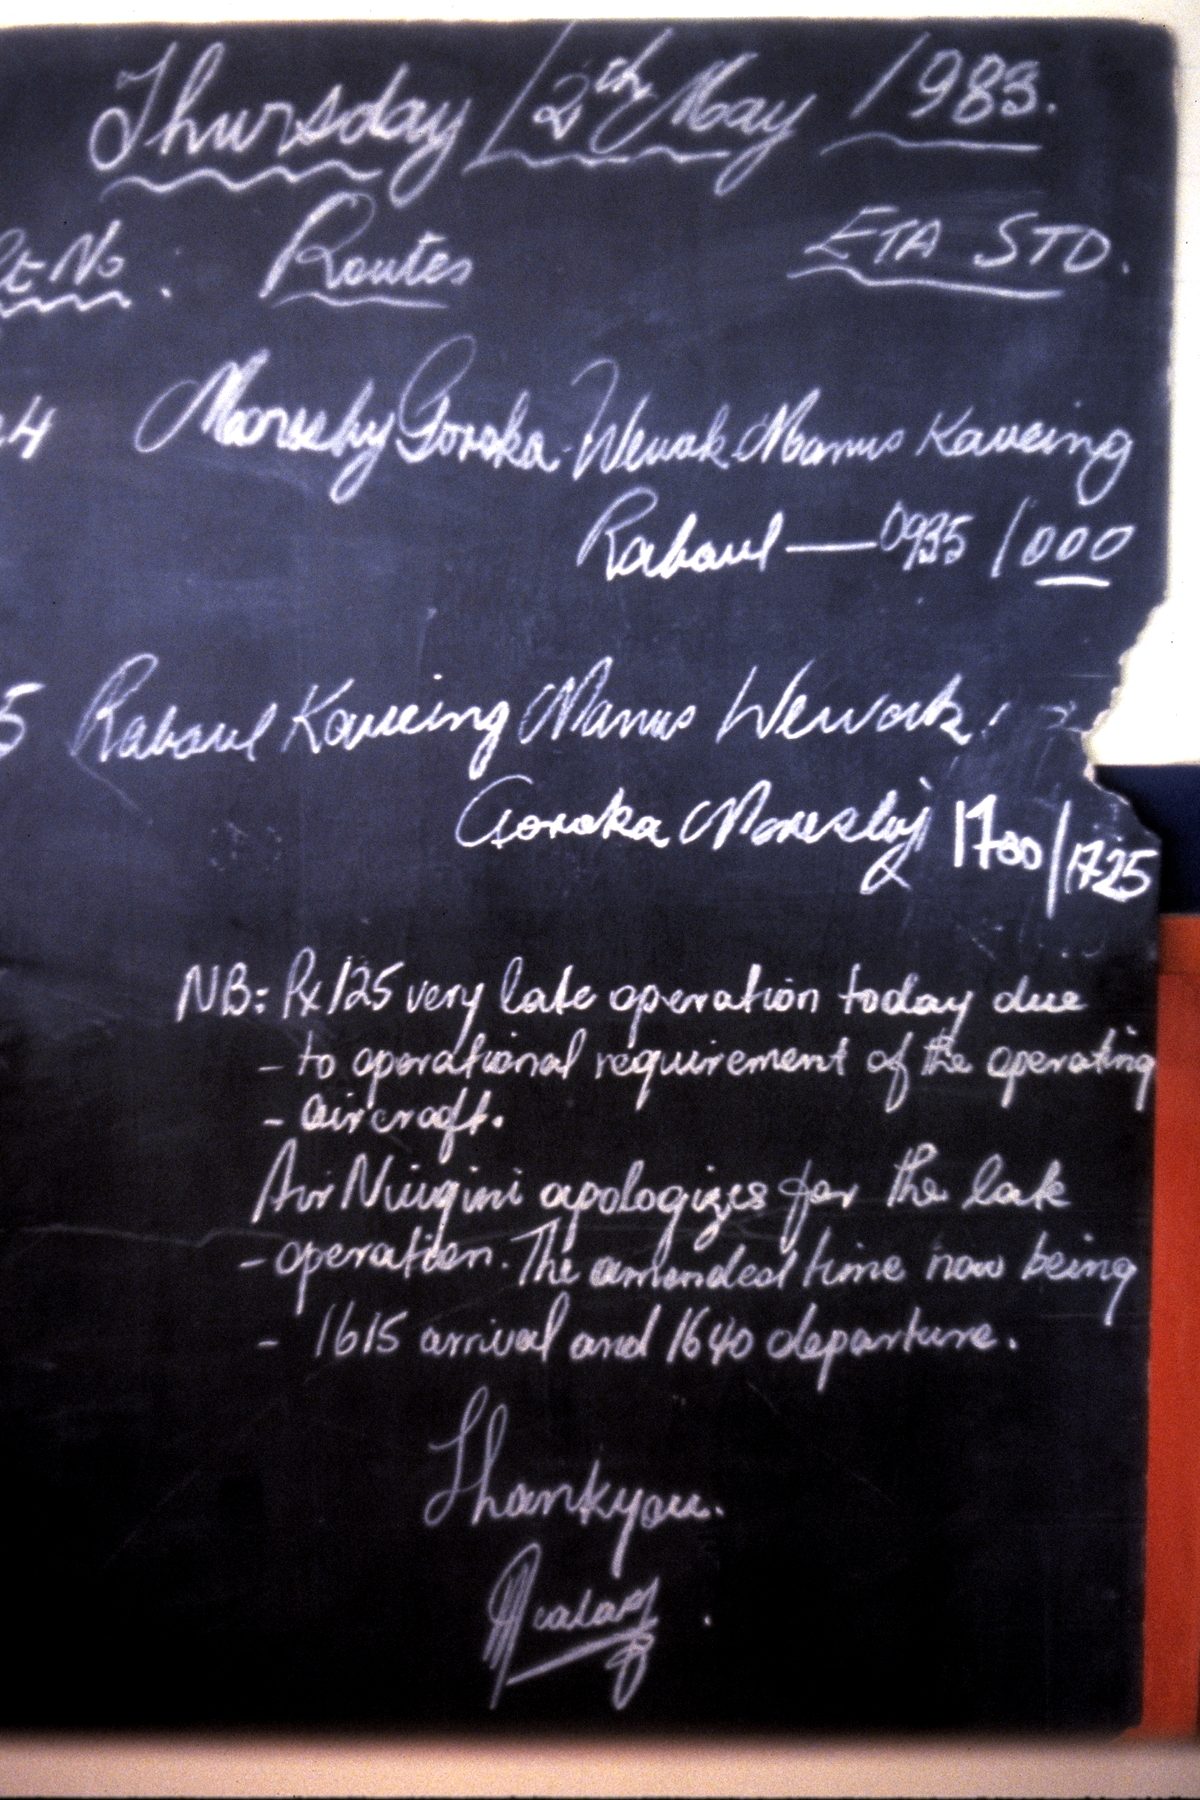 Thursday 12th May 1983.
Flt No. Routes ETA STD.
24 Moresby Goroka - Wewak Manus Kavieng
Rabaul — 0935 / 1000
5 Rabaul Kavieng Manus Wewak
Goroka Moresby 1700/1725
NB: Px 125 very late operation today due
- to operational requirement of the operating
- aircraft.
Air Niugini apologizes for the late
- operation. The amended time now being
- 1615 arrival and 1640 departure.
Thankyou.